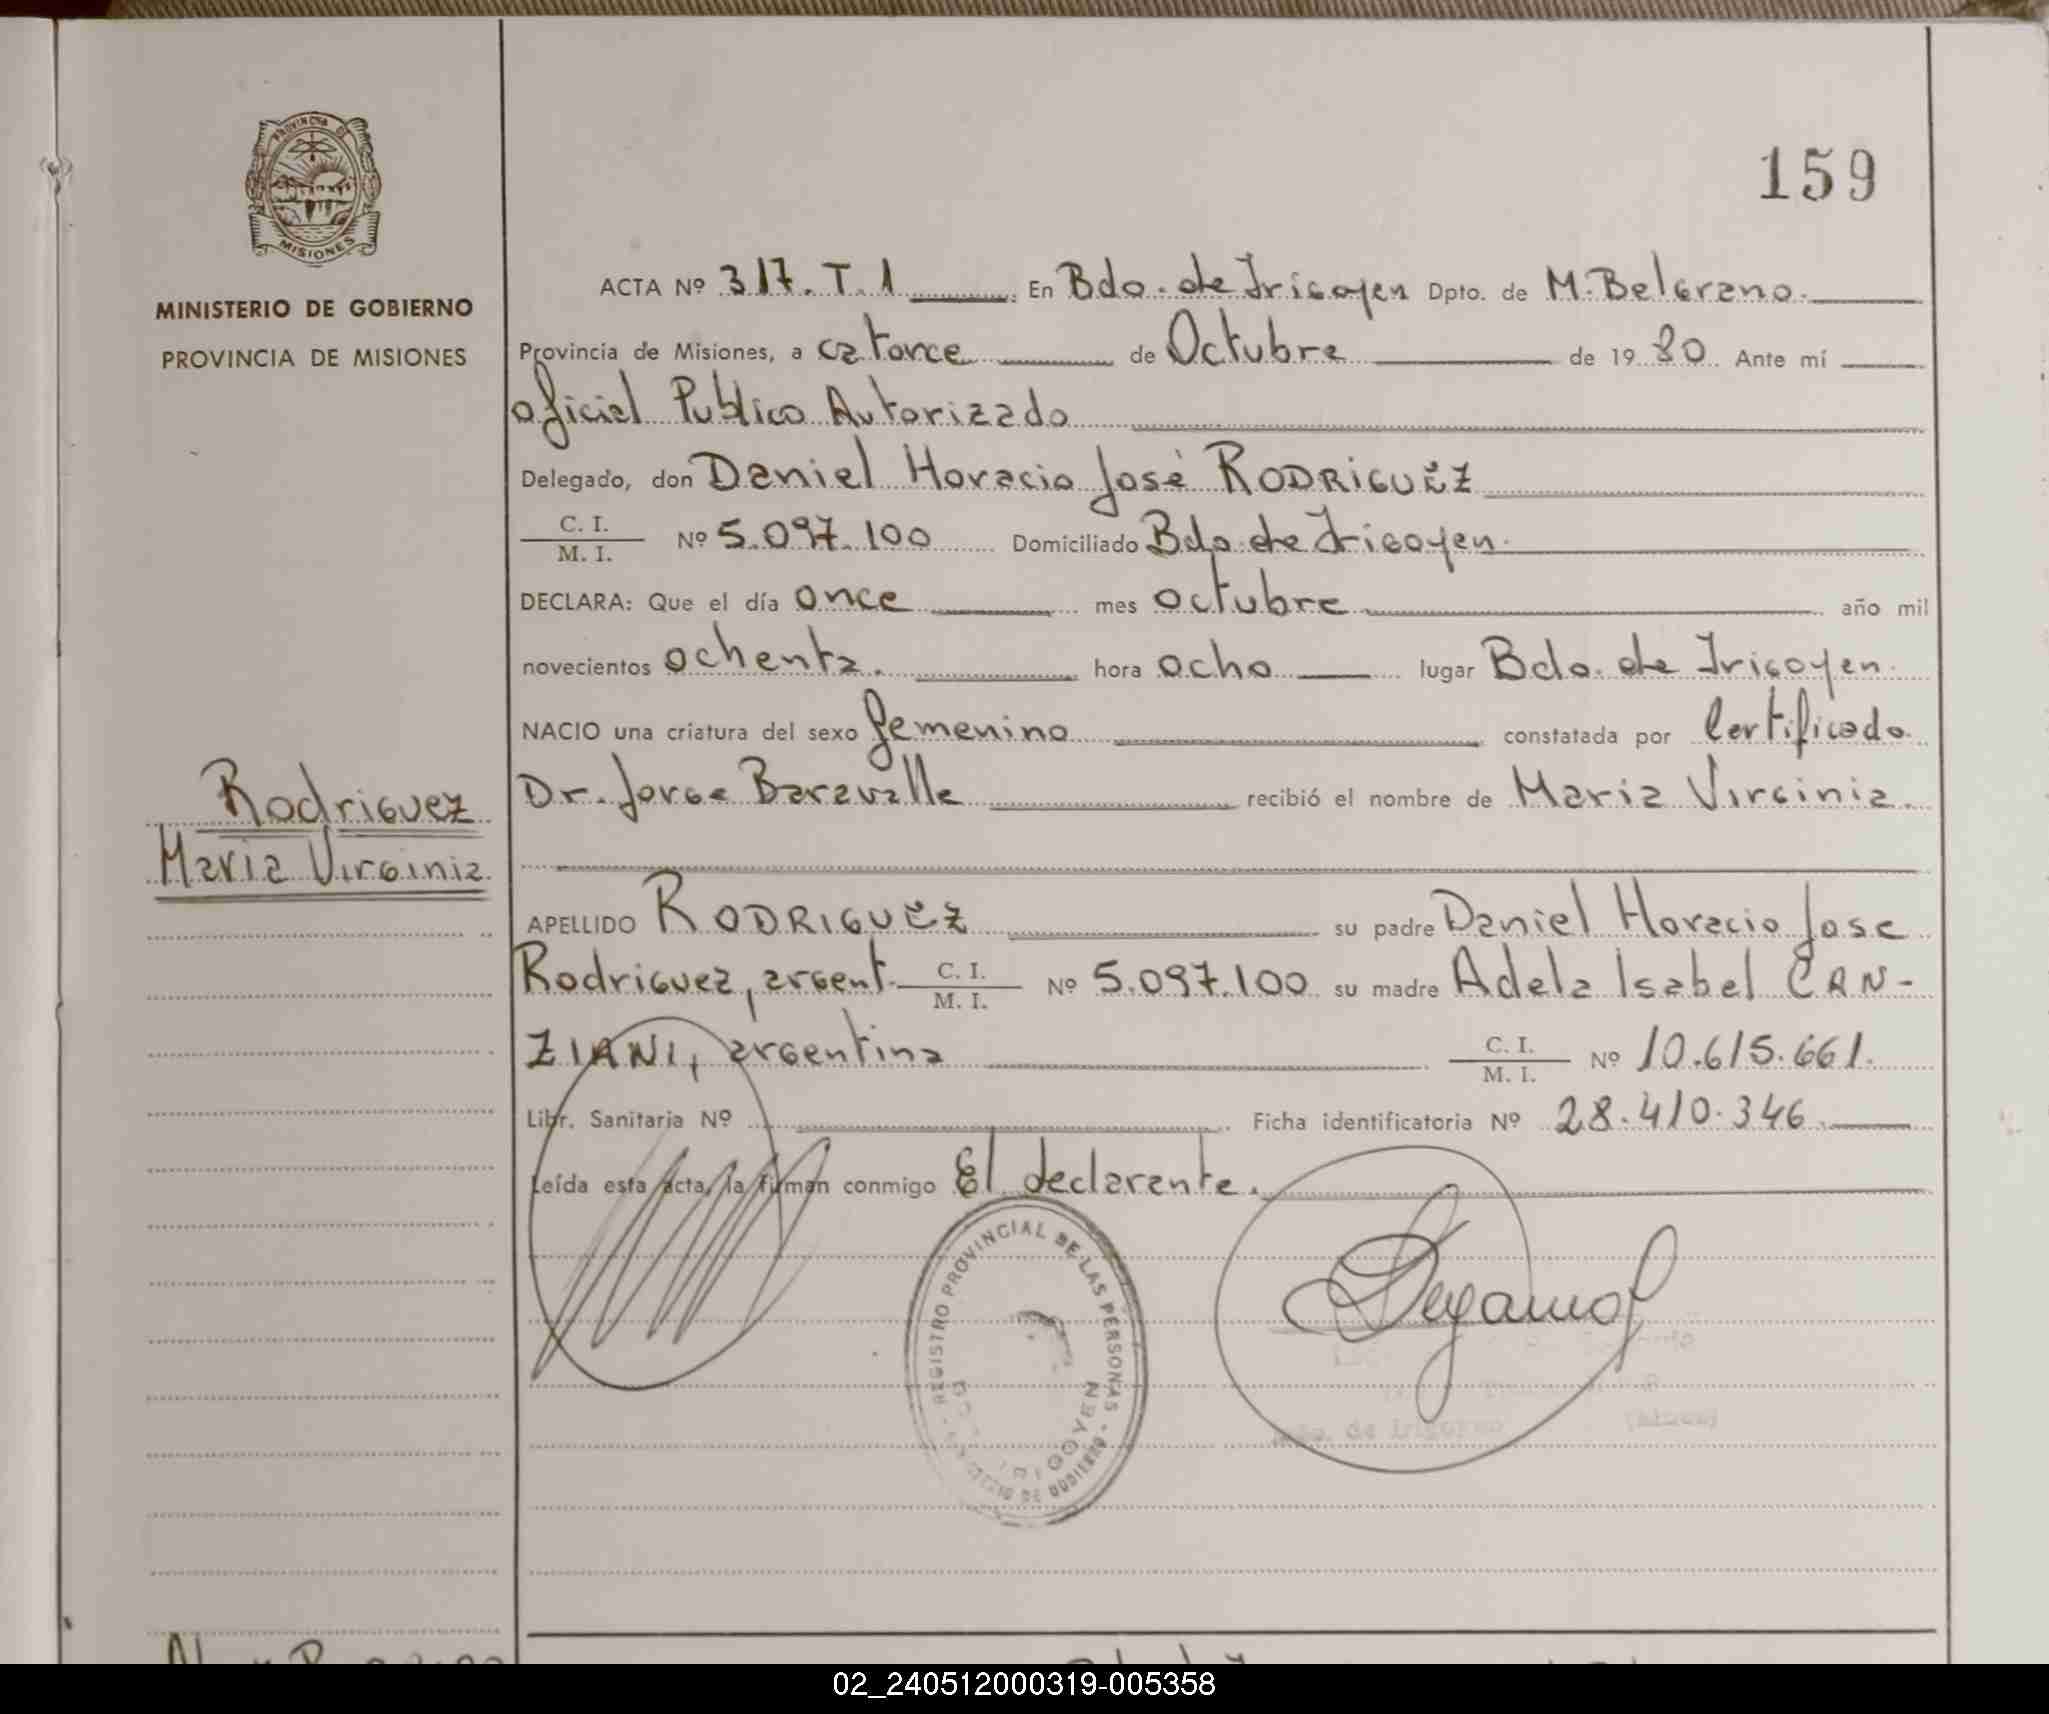 PROVINCIA DE
MISIONES
MINISTERIO DE GOBIERNO
PROVINCIA DE MISIONES
159
ACTA Nº 317. T. 1 En Bdo. de Irigoyen Dpto. de M. Belgrano.
Provincia de Misiones, a catorce de Octubre de 1980 Ante mí
oficial Publico Autorizado
Delegado, don Daniel Horacio José RODRIGUEZ
C. I.
M. I. Nº 5.097.100 Domiciliado Bdo. de Irigoyen.
DECLARA: Que el día once mes octubre año mil
novecientos ochenta. hora ocho lugar Bdo. de Irigoyen.
NACIO una criatura del sexo femenino constatada por Certificado
Dr. Jorge Baravalle recibió el nombre de Maria Virginia.
Rodriguez
Maria Virginia
APELLIDO RODRIGUEZ su padre Daniel Horacio Jose
Rodriguez, argent. C. I.
M. I. Nº 5.097.100 su madre Adela Isabel CAN-
ZIANI, argentina C. I.
M. I. Nº 10.615.661.
Libr. Sanitaria Nº Ficha identificatoria Nº 28.410.346
Leída esta acta, la firman conmigo El declarante.
REGISTRO PROVINCIAL DE LAS PERSONAS
IRIGOYEN
DE GOBIERNO
02_240512000319-005358